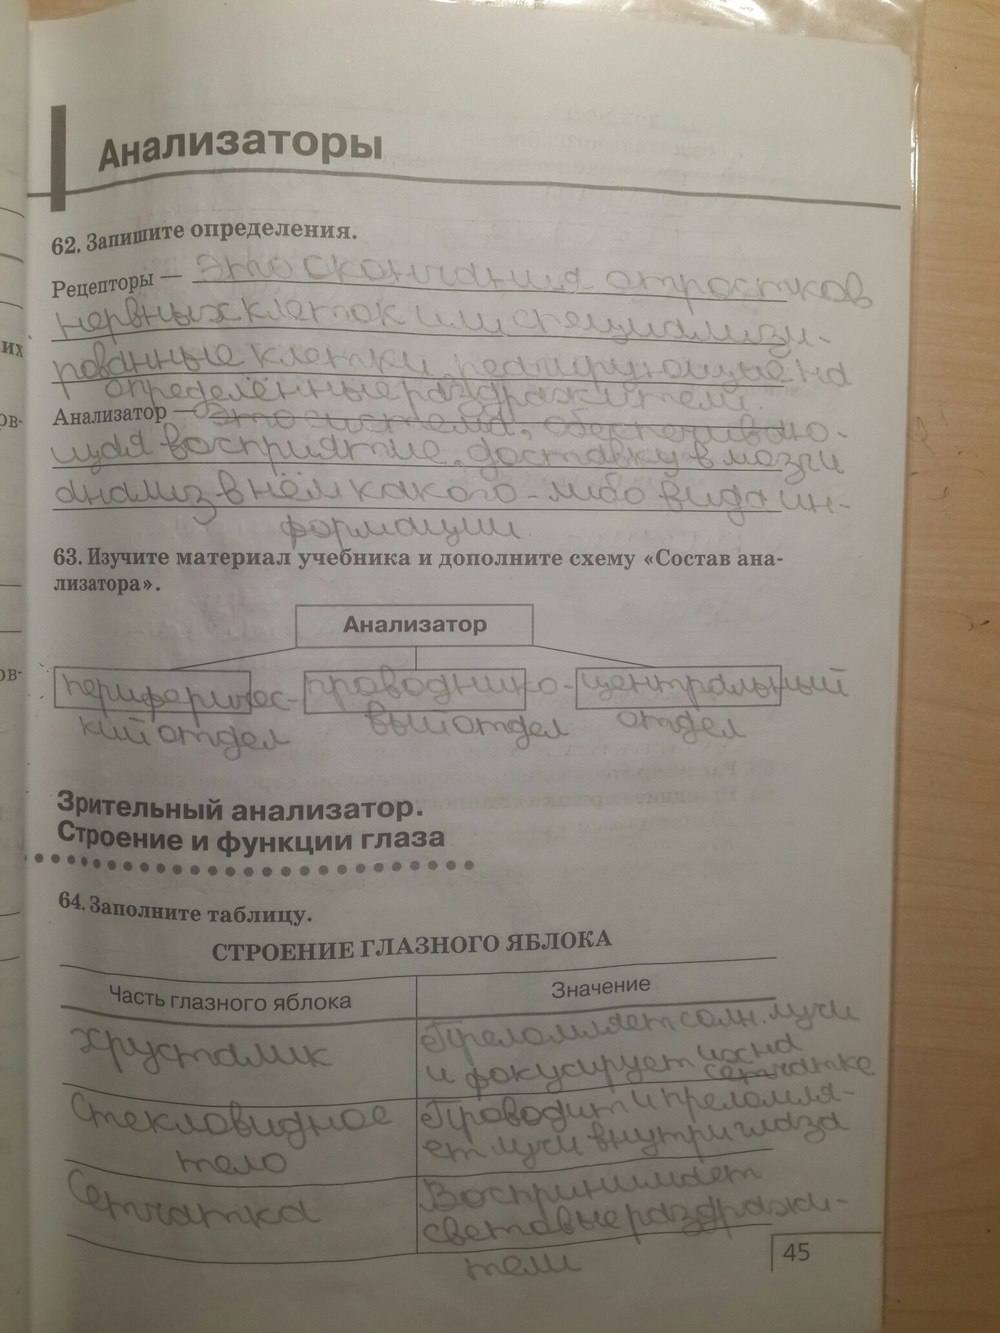 Анализаторы
62. Запишите определения.
Рецепторы — это окончания отростков
нервных клеток или специализи-
рованные клетки, реагирующие на
определённые раздражители.
Анализатор — это система, обеспечиваю-
щая восприятие, доставку в мозг и
анализ в нём какого-либо вида ин-
формации
63. Изучите материал учебника и дополните схему «Состав ана-
лизатора».
Анализатор
периферичес-
кий отдел
проводнико-
вый отдел
центральный
отдел
Зрительный анализатор.
Строение и функции глаза
64. Заполните таблицу.
СТРОЕНИЕ ГЛАЗНОГО ЯБЛОКА
Часть глазного яблока Значение
Хрусталик
Преломляет солн. лучи
и фокусирует их на
сетчатке
Стекловидное
тело
Проводит и преломля-
ет лучи внутри глаза
Сетчатка
Воспринимает
световые раздражи-
тели
45
их
ов-
ов-